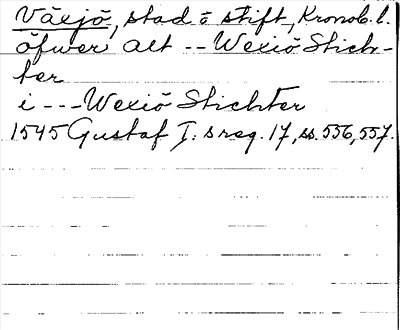 Växjö, stad o stift, Kronob. l.
öfwer alt -- Wexiö Stich-
ter
i --- Wexiö Stichter
1545 Gustaf I:s reg. 17, ss. 556, 557.